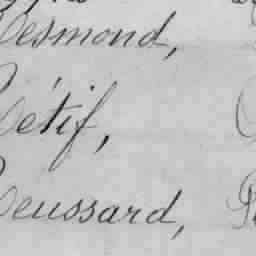 esmond,
étif,
eussard,